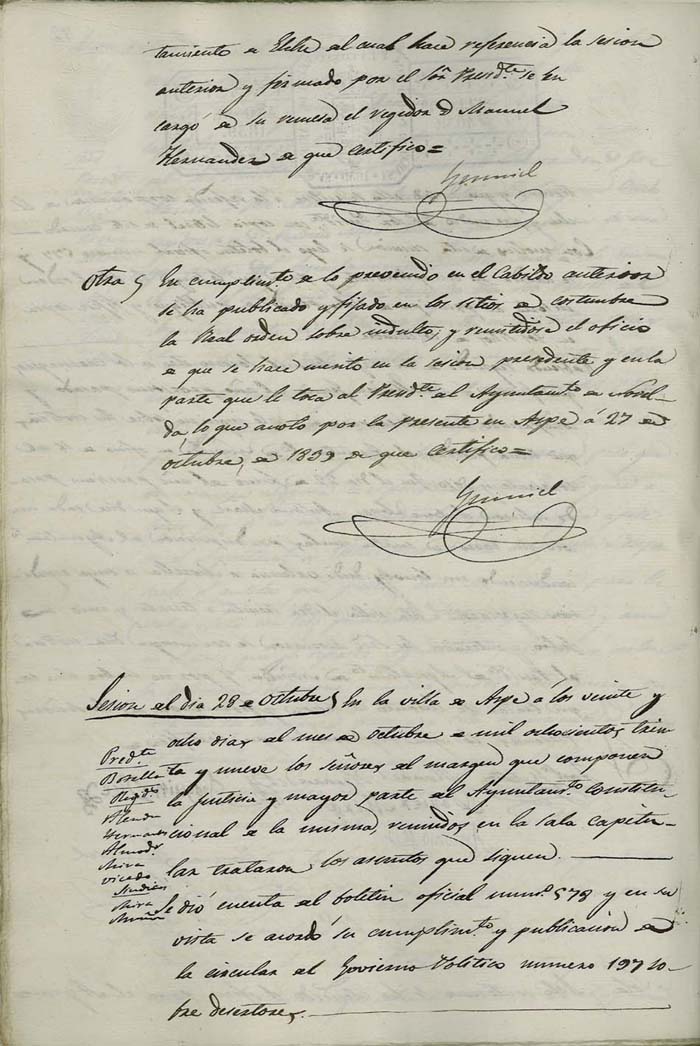 tamiento de Elche al cual hace referencia la sesion
anterior y firmado por el Sōr Presdte. se en
cargó de su remesa el regidor D Manuel
Hernandez de que certifico=
Otra En cumplimto. de lo prevenido en el Cabildo anterior
se ha publicado y fijado en los sitios de costumbre
la Real orden sobre indulto, y remitidose el oficio
de que se hace merito en la sesion presidente y en la
parte que le toca al Presdte. del Ayuntamto. de Novel-
da, lo que anoto por la presente en Aspe á 27 de
octubre, de 1839 de que certifico=
Sesion del dia 28 de octubre En la villa de Aspe á los veinte y
ocho dias del mes de octubre de mil ochocientos trein
Predte.
ta y nueve los Señores del margen que componen
Regdes.
la justicia y mayor parte del Ayuntamto. Constitu-
cional de la misma, reunidos en la sala capitu-
Almodr.
Mira
lar trataron los asuntos que siguen.
Vicedo
Sindicos
Se dió cuenta del boletin oficial numo. 578 y en su
Mira
vista se acordó su cumplimto. y publicacion de
la circular del Govierno Politico numero 197 so-
bre desertores.